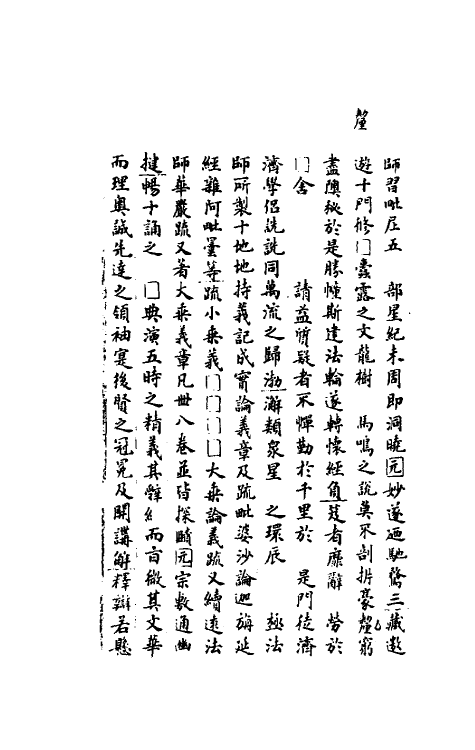 釐
師習毗尼五　部星紀未周即洞曉元妙遂迺馳騖三藏遨
遊十門修□囊露之文龍樹　馬鳴之說莫不剖析豪釐窮
盡隩秘於是勝幢斯建法輪遂轉懷經負笈者靡辭　勞於
□舍　請益質疑者不憚勤於千里於　是門徒濟
濟學侶詵詵同萬流之歸渤澥類衆星　之環辰　極法
師所製十地地持義記成實論義章及疏毗婆沙論迦旃延
經雜阿毗曇等疏小乗義□□□□大乗論義疏又續遠法
師華嚴疏又著大乗義章凡卌八卷並皆探賾元宗敷通幽
揵暢十誦之　□典演五時之精義其辭　而旨微其文華
而理奧誠先達之領袖寔後賢之冠冕及開講解釋辯若懸